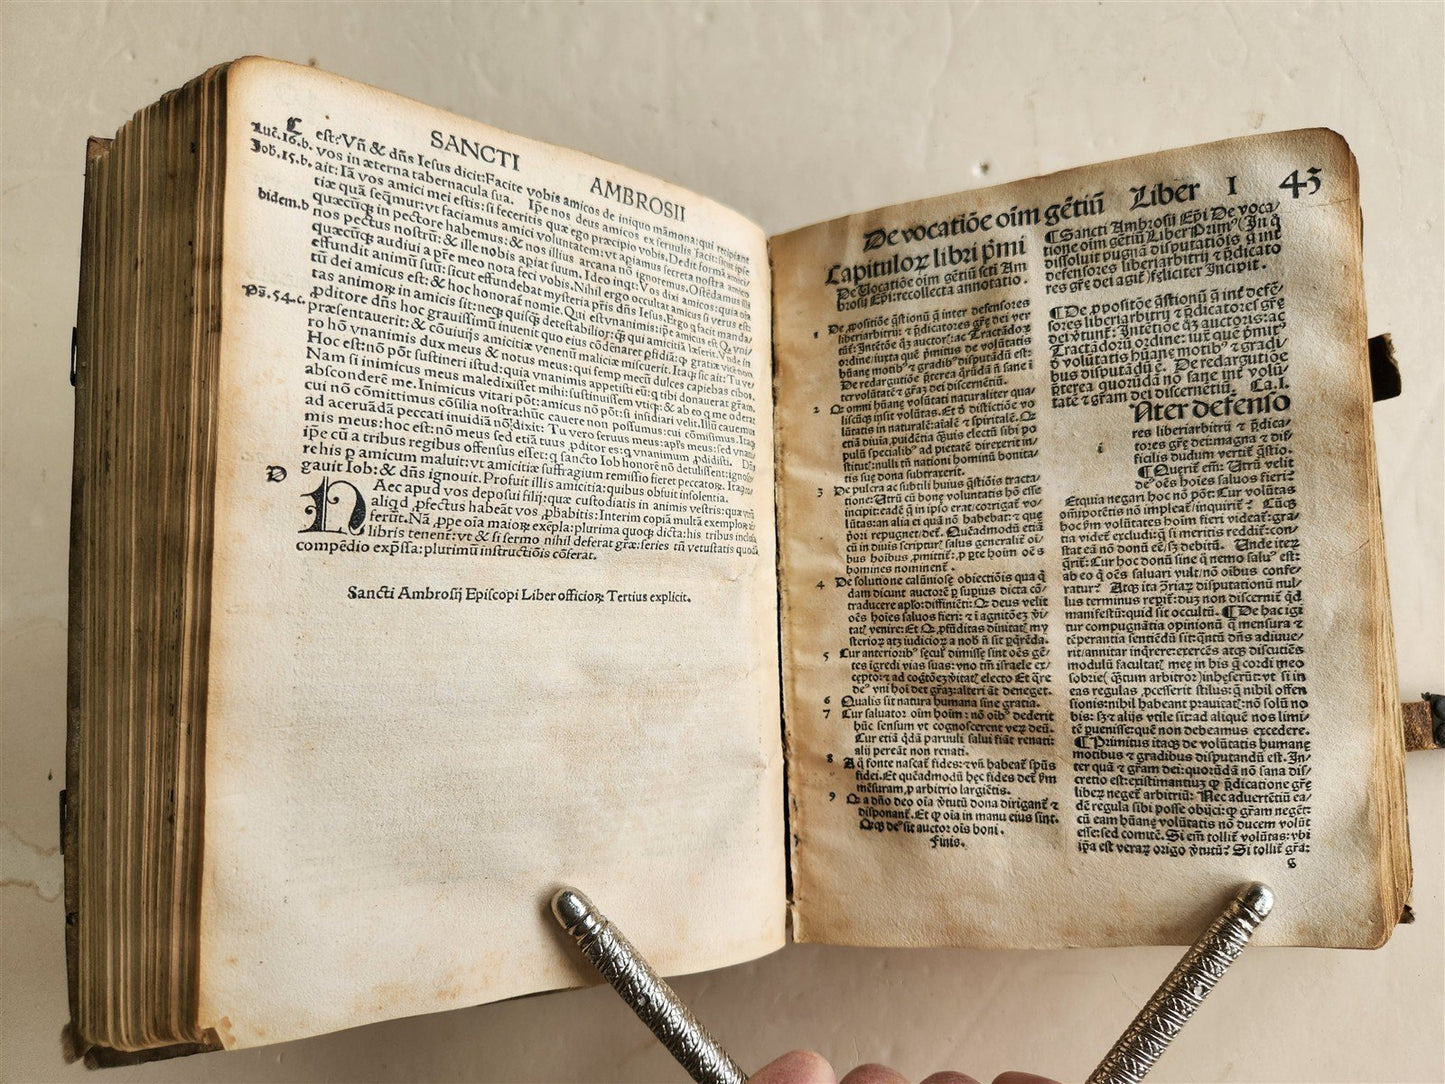 SANCTI AMBROSII
C est? Vñ & dñs Iesus dicit: Facite vobis amicos de iniquo mãmona: qui recipiant
Luc̃.16.b. vos in æterna tabernacula sua. Ipe nos deus amicos ex seruulis facit: sicut ipse
Ioh.15.b. ait: Iã vos amici mei estis: si feceritis quæ ego præcipio vobis. Dedit formã amici/
tiæ quã seq̃mur: vt faciamus amici voluntatem: vt aperiamus secreta nostra amico
bidem.b quæcũq̃ in pectore habemus: & nos illius arcana nõ ignoremus. Ostẽdamus illi
nos pectus nostrũ: & ille nobis apiat suum. Ideo inqt: Vos dixi amicos: quia oĩa
quæcũq̃ audiui a p̃re meo nota feci vobis. Nihil ergo occultat amicus si verus est:
effundit animũ suũ: sicut effundebat mysteria p̃ris dñs Iesus. Ergo q̃ facit manda/
tũ dei amicus est: & hoc honorat̃ nomine. Qui est vnanimis: ip̃e amicus est
tas animoꝝ in amicis sit: neq̃ quisq̃ detestabilior: q̃ qui amicitiã læserit. Vnde in
Ps̃.54.c. ꝓditore dñs hoc grauissimũ inuenit quo eius cõdẽnaret pfidiã: q̃ gratiæ vicẽ non
præsentauerit: & cõuiuijs amicitiæ venenũ maliciæ miscuerit. Itaq̃ sic ait: Tu ve/
ro hõ vnanimis dux meus & notus meus: qui semp mecũ dulces capiebas cibos.
Hoc est: nõ põt sustineri istud: quia vnanimis appetisti eũ: q tibi donauerat gr̃am.
Nam si inimicus meus maledixisset mihi: sustinuissem vtiq̃: & ab eo q me oderat
absconderẽ me. Inimicus vitari põt: amicus nõ põt: si insidiari velit. Illũ cauemus
cui nõ cõmittimus cõsilia nostra: hũc cauere non possumus: cui cõmisimus. Itaq̃
ad aceruãdã peccati inuidiã nõ dixit: Tu vero seruus meus: ap̃ls meus: sed vnani/
mis meus: hoc est: nõ meus sed etiã tuus ꝓditor es: q vnanimum ꝓdidisti. Dñs
ip̃e cũ a tribus regibus offensus esset: q̃ sancto Iob honorẽ nõ detulissent: ignosce/
rehis p amicum maluit: vt amicitiæ suffragium remissio fieret peccatoꝝ. Itaq̃ ro/
D gauit Iob: & dñs ignouit. Profuit illis amicitia: quibus obfuit insolentia.
HAec apud vos deposui filij: quæ custodiatis in animis vestris: quæ vtrũ
aliqd ꝓfectus habeãt vos ꝓbabitis: Interim copiã multã exemploꝝ af/
ferũt. Nã ꝓpe oĩa maioꝝ exẽpla: plurima quoq̃ dicta: his tribus inclusa
libris tenent̃: vt & si sermo nihil deferat græ: series tñ vetustatis quodã
compẽdio exp̃ssa: plurimũ instructiõis cõferat.
Sancti Ambrosij Episcopi Liber officioꝝ Tertius explicit.
De vocatiõe oĩm gẽtiũ Liber I 43
Capituloꝝ libri p̃mi
De Vocatiõe oĩm gẽtiũ scti Am
brosij Ep̃i: recollecta annotatio.
1 De ꝓpositiõe q̃stionũ q̃ inter defensores
liberiarbitrij: ⁊ p̃dicatores gr̃e dei ver
tũt̃: Intẽtiõe q̃ꝫ auctor̃: ac Tractãdoꝝ
ordine: iuxta quẽ p̃mitus de volũtatis
hũane motib⁹ ⁊ gradib⁹ disputãdũ est:
De redargutiõe p̃terea q̃rũdã ñ sane ĩ
tervolũtatẽ ⁊ gr̃aꝫ dei discernẽtiũ.
2 Q omni hũane volũtati naturaliter qua/
liscũq̃ insit volũtas. Et ð distictiõe vo
lũtatis in naturalẽ: aĩalẽ ⁊ spiritalẽ. Q
etiã diuĩa ꝓuidẽtia q̃uis electũ sibi po
pulũ specialib⁹ ad pietatẽ direxerit in/
stitut̃: nulli tñ nationi hominũ bonita/
tis sue dona subtraxerit.
3 De pulcra ac subtili huius q̃stiõis tracta/
tione: Vtrũ cũ bone voluntatis hõ esse
incipit: eadẽ q̃ in ipso erat/corrigat̃ vo/
lũtas: an alia ei quã nõ habebat: ⁊ que
p̃ori repugnet/det̃. Quẽadmodũ etiã
cũ in diuis scriptur̃ salus generalit̃ oĩ
bus hoĩbus ꝓmittit̃: ꝓ p̃te hoĩm oẽs
homines nominent̃.
4 De solutione calũniose obiectiõis qua q̃
dam dicunt auctorẽ p̃ supius dicta cõ/
traducere ap̃lo: diffiniẽti: Q deus velit
oẽs hoĩes saluos fieri: ⁊ ĩ agnitõeꝫ v̾i/
tat̃ venire: Et Q ꝓfũditas diuitat̃ my
steriorꝫ atꝫ iudicioꝝ a nob̃ ñ sit p̃q̃rẽda.
5 Cur anteriorib⁹ sec̃ul̃ dimisse sint oẽs gẽ/
tes ĩgredi vias suas: vno tm̃ israele ex/
cepto: ⁊ ad cogtõeꝫ v̾itat̃ electo Et q̃re
de⁹ vni hoĩ det gr̃aꝫ: alteri aũt deneget.
6 Qualis sit natura humana sine gratia.
7 Cur saluator oĩm hoĩm: nõ oĩb⁹ dederit
hũc sensum vt cognoscerent verꝫ deũ.
Cur etiã q̃dã paruuli salui fiãt renati:
alij pereãt non renati.
8 A q̃ fonte nascat̃ fides: ⁊ vñ habeat̃ sp̃us
fidei. Et quẽadmodũ hec fides det̃ f̃m
mẽsuram/p arbitrio largiẽtis.
9 Q a dño deo oĩa v̾tutũ dona dirigant̃ ⁊
disponant̃. Et q̃ oĩa in manu eius sint.
Qq̃ de⁹ sit auctor oĩs boni.
Finis.
¶Sancti Ambrosij Ep̃i De voca/
tione oĩm gẽtiũ Liber Prim⁹ (In q̃
dissoluit pugnã disputatiõis q̃ int̃
defensores liberiarbitrij ⁊ p̃dicato
res gr̃e dei agit̃) feliciter Incipit.
¶De ꝓpositõe q̃stionũ q̃ int̃ defẽ/
sores liberiarbitrij ⁊ p̃dicatores gr̃e
dei v̾tunt̃: Intẽtiõe q̃ꝫ auctoris: ac
Tractãdorũ ordine: iuxt̃ quẽ p̃mit̃
ð volũtatis hũane motib⁹ ⁊ gradi/
bus disputãdũ ẽ. De redargutiõe
p̃terea quorũdã no sane int̃ volũ/
tatẽ ⁊ gr̃am dei discernẽtiũ. Ca.I.
INter defenso
res liberiarbitrij ⁊ p̃dica/
tores gr̃e dei: magna ⁊ dif/
ficilis dudum vertit̃ q̃stio.
¶Querit̃ em̃: Vtrũ velit
de⁹ oẽs hoĩes saluos fieri?
Etquia negari hoc nõ põt: Cur volũtas
om̃ipotẽtis nõ impleat̃/inquirit̃? Cũq̃
hoc f̃m volũtates hoĩm fieri videat̃: gra/
tia videt̃ excludi: q̃ si meritis reddit̃: con/
stat eã nõ donũ eẽ/sꝫ debitũ. Vnde iteꝝ
q̃rit̃: Cur hoc donũ sine q̃ nemo salu⁹ est:
ab eo q̃ oẽs saluari vult/nõ oĩbus confe/
ratur? Atq̃ ita ɔ̃riaꝝ disputationũ nul/
lus terminus repĩt̃: duꝫ non discernit̃ q̃d
manifestũ: quid sit occultũ. ¶De hac igi
tur compugnãtia opinionũ q̃ mensura ⁊
tẽperantia sentiẽdũ sit: q̃ntũ dñs adiuue/
rit/annitar inq̃rere: exercẽs atq̃ discutiẽs
modulũ facultat̃ meę in his q̃ cordi meo
sobrie (q̃ntum arbitror) inheserũt: vt si in
eas regulas ꝓcesserit stilus: q̃ nihil offen
sionis: nihil habeant prauitat̃: nõ solũ no
bis: sꝫ ⁊ alijs vtile sit: ad aliquẽ nos limi/
tẽ puenisse: quẽ non debeamus excedere.
¶Primitus itaq̃ de volũtatis humanę
motibus ⁊ gradibus disputandũ est. In/
ter quã ⁊ gr̃am dei: quorũdã nõ sana dis/
cretio est: existimantiuꝫ q̃ p̃dicatione gr̃e
liberꝫ neget̃ arbitriũ: Nec aduertẽtiũ ea/
dẽ regula sibi posse obijci: q̃ gr̃am negẽt:
cũ eam hũanę volũtatis nõ ducem volũt
esse: sed comitẽ. Si em̃ tollit̃ volũtas: vbi
ip̃a est veraꝝ origo v̾tutũ? Si tollit̃ gr̃a:
g